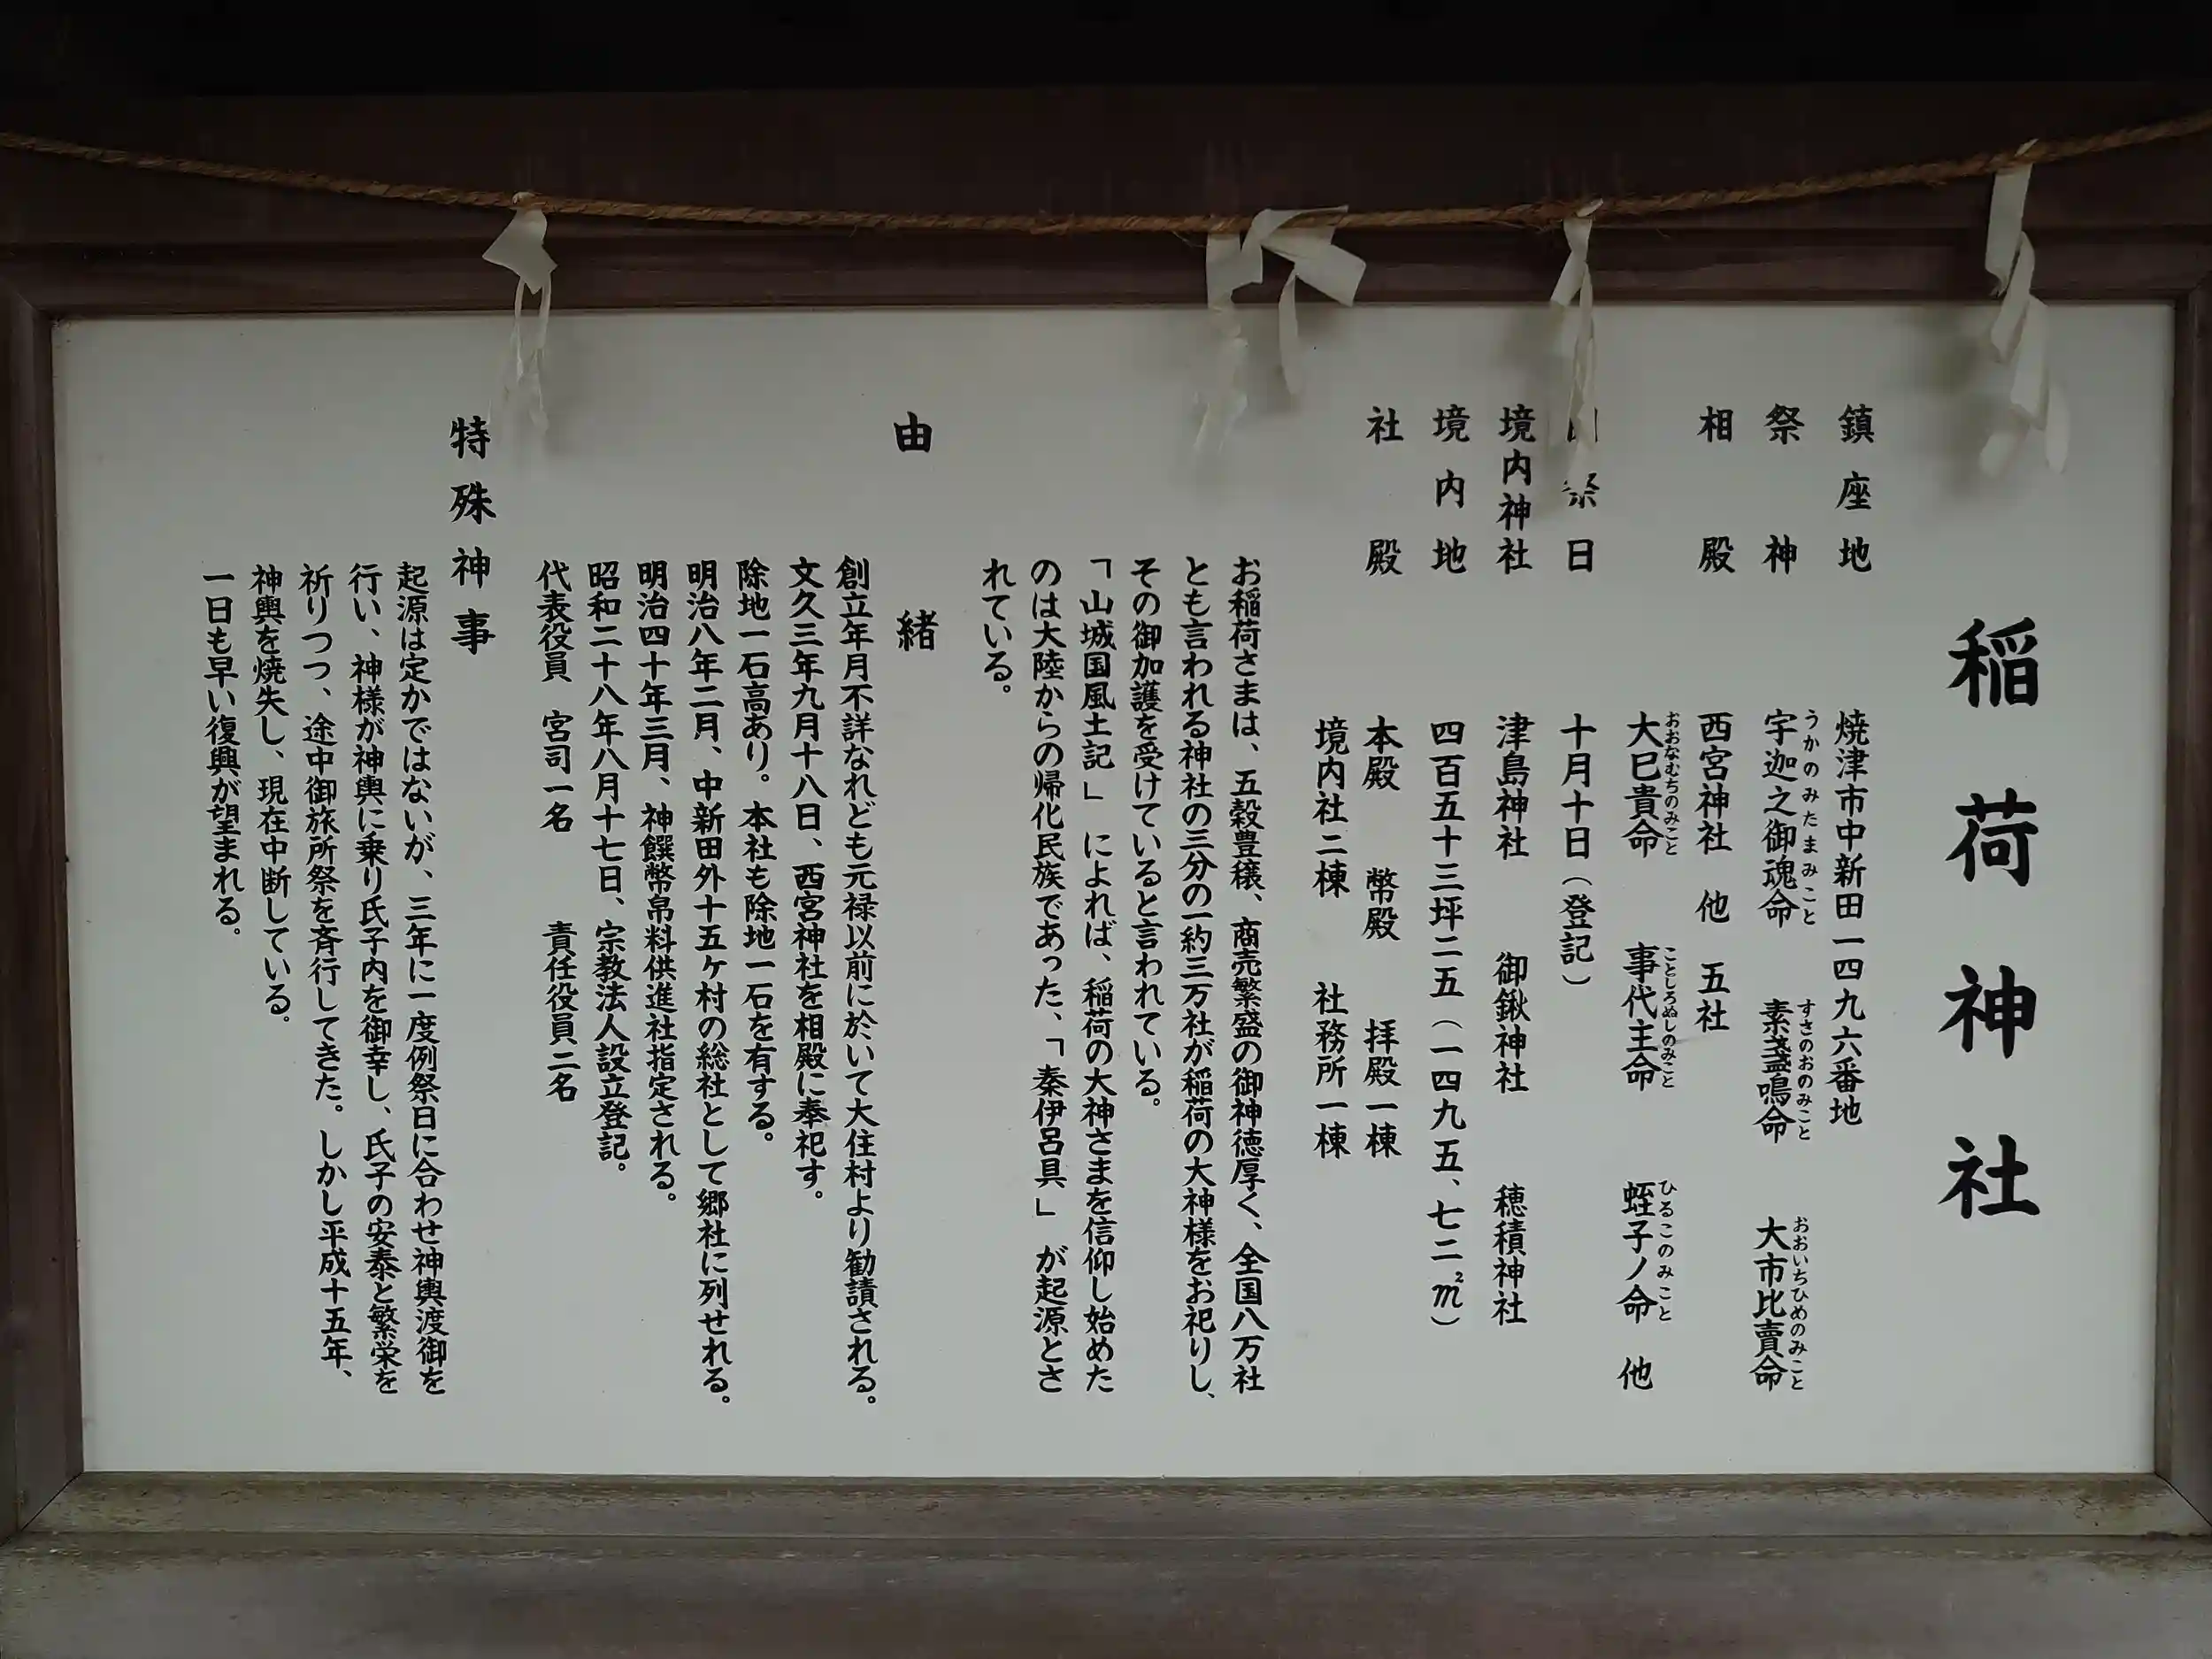 稲荷神社
鎮座地 焼津市中新田一四九六番地
祭神 宇迦之御魂命 素戔鳴命 大市比賣命
うかのみたまみこと すさのおのみこと おおいちひめのみこと
相殿 西宮神社 他 五社
大巳貴命 事代主命 蛭子ノ命 他
おおなむちのみこと ことしろぬしのみこと ひるこのみこと
祭日 十月十日(登記)
境内神社 津島神社 御鍬神社 穂積神社
境内地 四百五十三坪二五(一四九五、七二㎡)
社殿 本殿 幣殿 拝殿一棟
境内社二棟 社務所一棟
お稲荷さまは、五穀豊穣、商売繁盛の御神徳厚く、全国八万社
とも言われる神社の三分の一約三万社が稲荷の大神様をお祀りし、
その御加護を受けていると言われている。
「山城国風土記」によれば、稲荷の大神さまを信仰し始めた
のは大陸からの帰化民族であった、「秦伊呂具」が起源とさ
れている。
由緒
創立年月不詳なれども元禄以前に於いて大住村より勧請される。
文久三年九月十八日、西宮神社を相殿に奉祀す。
除地一石高あり。本社も除地一石を有する。
明治八年二月、中新田外十五ヶ村の総社として郷社に列せれる。
明治四十年三月、神饌幣帛料供進社指定される。
昭和二十八年八月十七日、宗教法人設立登記。
代表役員 宮司一名 責任役員二名
特殊神事
起源は定かではないが、三年に一度例祭日に合わせ神輿渡御を
行い、神様が神輿に乗り氏子内を御幸し、氏子の安泰と繁栄を
祈りつつ、途中御旅所祭を斉行してきた。しかし平成十五年、
神輿を焼失し、現在中断している。
一日も早い復興が望まれる。